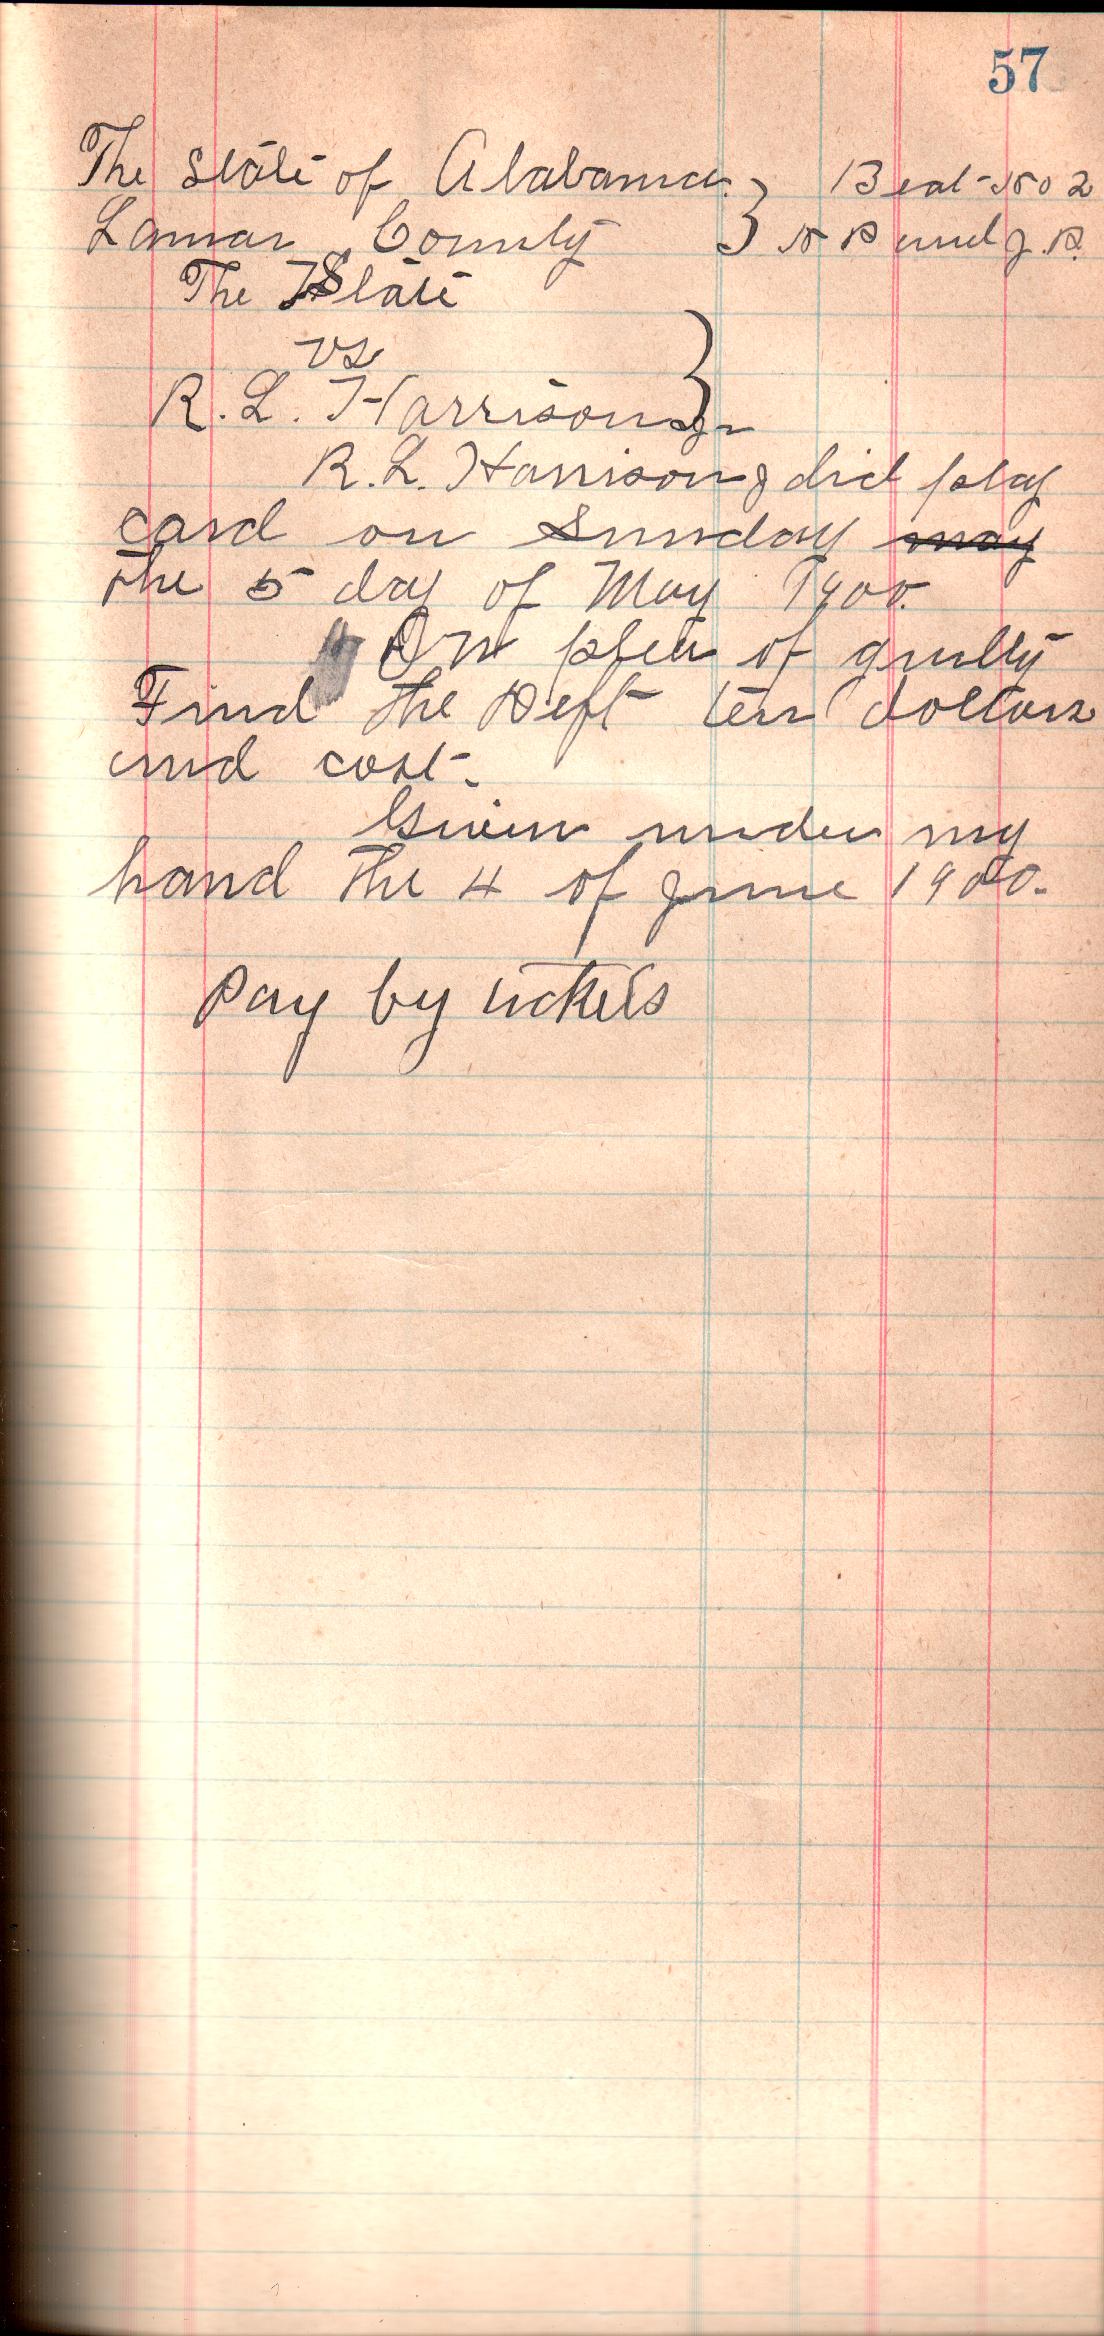 57
The State of Alabama } Beat No 2
Lamar County } N P and J. P.
The State
vs
R. L. Harrison Jr }
R. L. Harrison J did play
card on Sunday may
the 5 day of May 1900.
On plea of guilty
Find the Deft ten dollars
and cost.
Given under my
hand the 4 of June 1900.
Pay by tickets